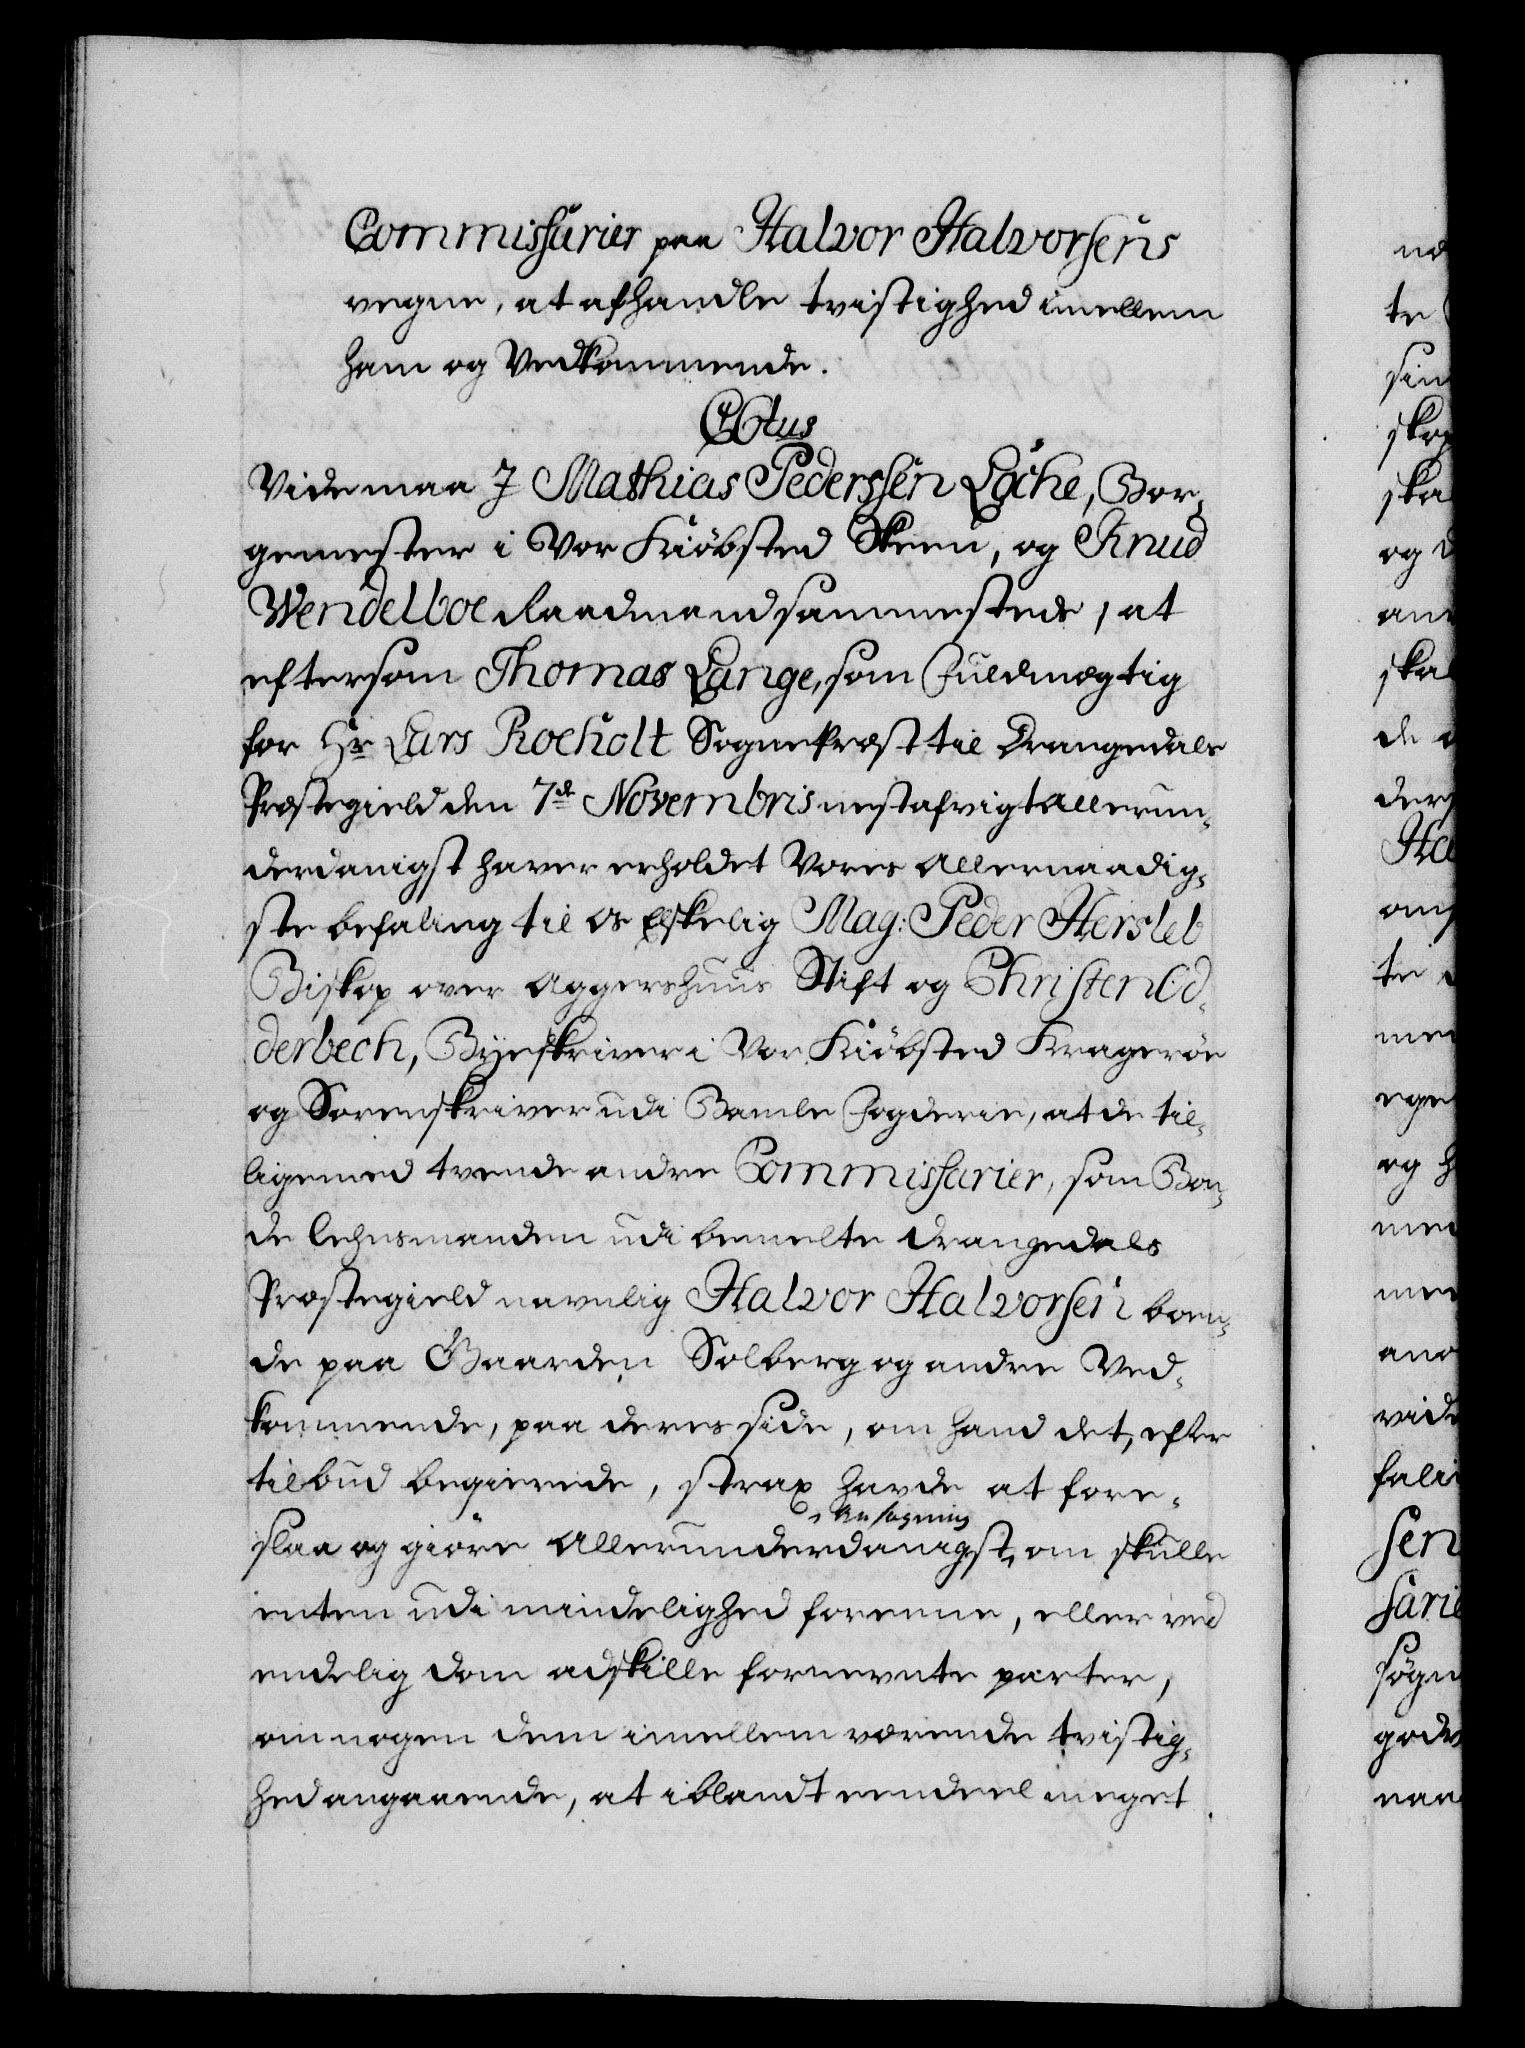 Commissarier paa Halvor Halvorsens
vegne, at afhandle tvistighed imellem
ham og Vedkommende.
C6tus
Vide maa J Mathias Pederssen Løche, Bor-
gemester i Vor Kiøbsted Skeen, og Knud
Wendelboe Raadmand sammesteds, at
eftersom Thomas Lange, som Fuldmægtig
for Hr Lars Rocholt Sognepræst til Drangedals
Præstegield den 7de Novembris nestafvigt allerun-
derdanigst haver erholdet Vores allernaadig-
ste befaling til Os Elskelig Mag: Peder Hersleb
Biskop over Aggershuus Stift og Christen Od-
derbech, Byeskriver i Vor Kiøbsted Kragerøe
og Sorenskriver udi Bamle Fogderie, at de til-
ligemed tvende andre Commissarier, som Bon-
de Lehnsmanden udi bemelte Drangedals
Præstegield navnlig Halvor Halvorsen boen-
de paa Gaarden Solberg og andre Ved-
kommende, paa deres side, om hand det, efter
tilbud begierede, strax havde at fore-
slaa og giöre allerunderdanigst Ansøgning om skulle
enten udi mindelighed foreene, eller ved
endelig dom adskille fornevnte parter,
om nogen dem imellem værende tvistig-
hed angaaende, at iblandt eendeel meget